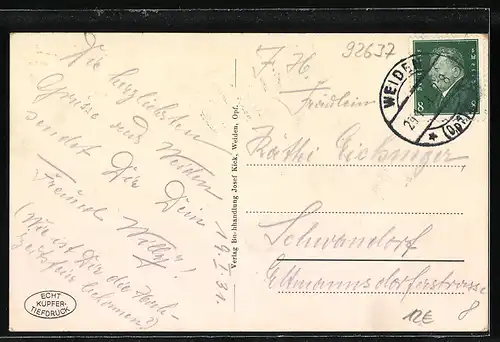 Die herzlichsten
Grüsse aus Weiden
sendet Dir Dein
Freund Willy!
(Wie ist Dir die Hoch-
zeitsfeier bekommen?)
19. I. 31.
ECHT
KUPFER-
TIEFDRUCK
Verlag Buchhandlung Josef Kick, Weiden, Opf.
92637
8
WEIDEN
29
* (Opf.
Fräulein
Käthi Eichinger
Schwandorf
Ettmannsdorferstrasse
8
12€